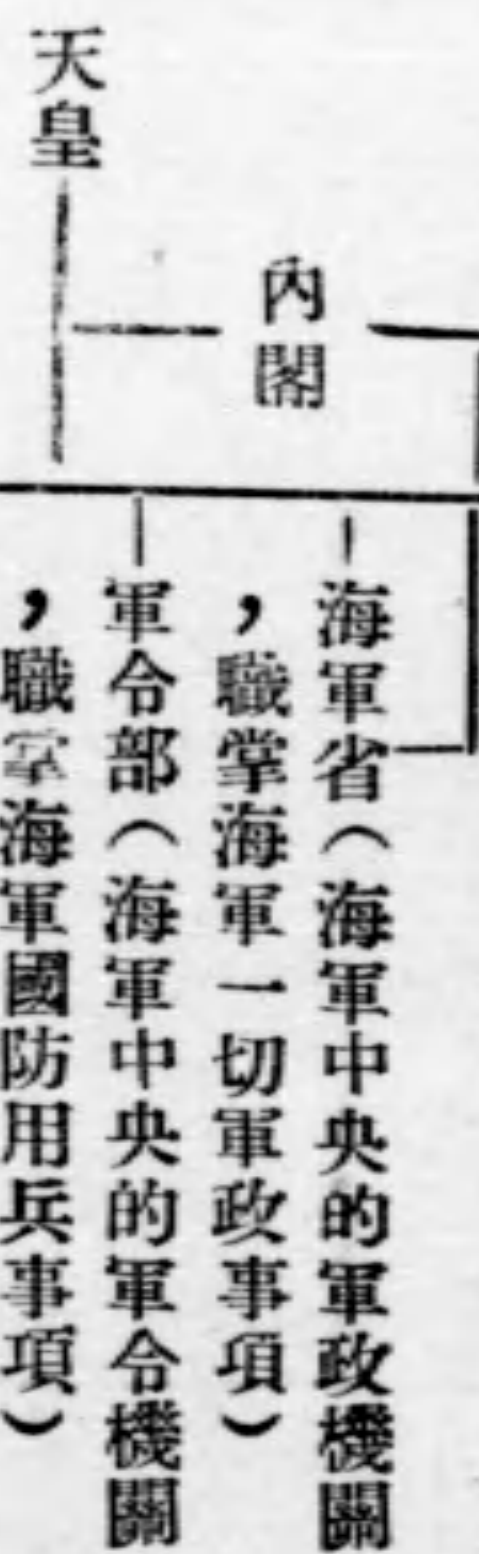 海軍省（海軍中央的軍政機關
，職掌海軍一切軍政事項）
軍令部（海軍中央的軍令機關
，職掌海軍國防用兵事項）
內閣
天皇